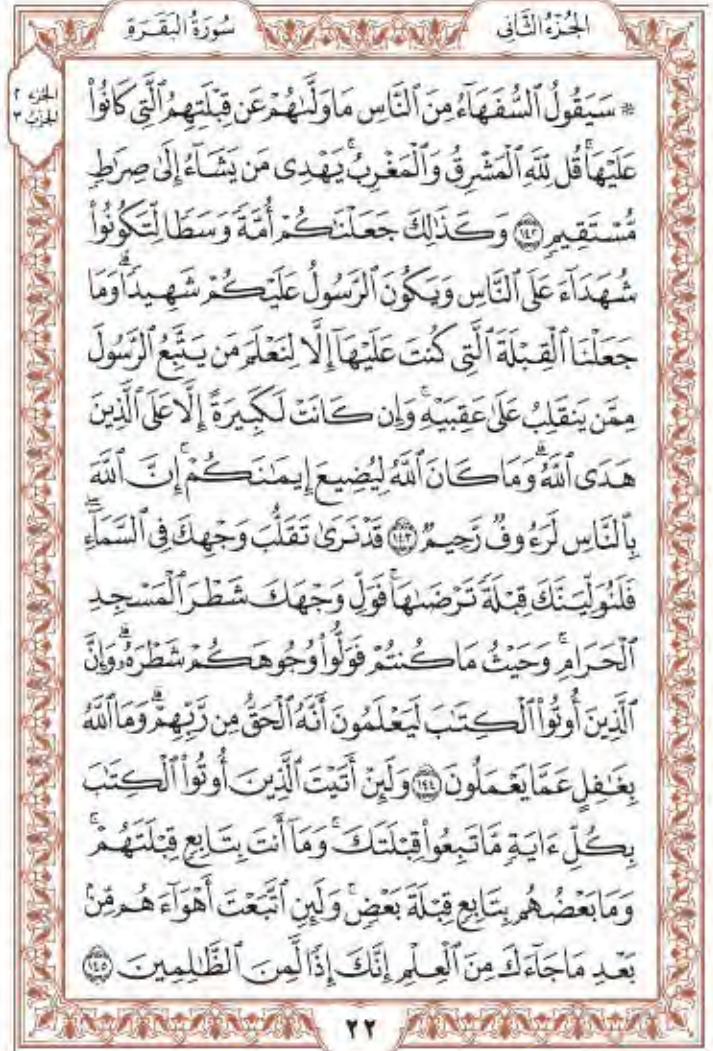 سُورَةُ البَقَرَةِ
الجُزْءُ الثَّانِى
الجزء ٢
الحزب ٣
۞ سَيَقُولُ ٱلسُّفَهَآءُ مِنَ ٱلنَّاسِ مَا وَلَّىٰهُمْ عَن قِبْلَتِهِمُ ٱلَّتِى كَانُوا۟
عَلَيْهَاۚ قُل لِّلَّهِ ٱلْمَشْرِقُ وَٱلْمَغْرِبُۚ يَهْدِى مَن يَشَآءُ إِلَىٰ صِرَٰطٍ
مُّسْتَقِيمٍ ١٤٢ وَكَذَٰلِكَ جَعَلْنَٰكُمْ أُمَّةً وَسَطًا لِّتَكُونُوا۟
شُهَدَآءَ عَلَى ٱلنَّاسِ وَيَكُونَ ٱلرَّسُولُ عَلَيْكُمْ شَهِيدًاۗ وَمَا
جَعَلْنَا ٱلْقِبْلَةَ ٱلَّتِى كُنتَ عَلَيْهَآ إِلَّا لِنَعْلَمَ مَن يَتَّبِعُ ٱلرَّسُولَ
مِمَّن يَنقَلِبُ عَلَىٰ عَقِبَيْهِۚ وَإِن كَانَتْ لَكَبِيرَةً إِلَّا عَلَى ٱلَّذِينَ
هَدَى ٱللَّهُۗ وَمَا كَانَ ٱللَّهُ لِيُضِيعَ إِيمَٰنَكُمْۚ إِنَّ ٱللَّهَ
بِٱلنَّاسِ لَرَءُوفٌ رَّحِيمٌ ١٤٣ قَدْ نَرَىٰ تَقَلُّبَ وَجْهِكَ فِى ٱلسَّمَآءِۖ
فَلَنُوَلِّيَنَّكَ قِبْلَةً تَرْضَىٰهَاۚ فَوَلِّ وَجْهَكَ شَطْرَ ٱلْمَسْجِدِ
ٱلْحَرَامِۚ وَحَيْثُ مَا كُنتُمْ فَوَلُّوا۟ وُجُوهَكُمْ شَطْرَهُۥۗ وَإِنَّ
ٱلَّذِينَ أُوتُوا۟ ٱلْكِتَٰبَ لَيَعْلَمُونَ أَنَّهُ ٱلْحَقُّ مِن رَّبِّهِمْۗ وَمَا ٱللَّهُ
بِغَٰفِلٍ عَمَّا يَعْمَلُونَ ١٤٤ وَلَئِنْ أَتَيْتَ ٱلَّذِينَ أُوتُوا۟ ٱلْكِتَٰبَ
بِكُلِّ ءَايَةٍ مَّا تَبِعُوا۟ قِبْلَتَكَۚ وَمَآ أَنتَ بِتَابِعٍ قِبْلَتَهُمْۚ
وَمَا بَعْضُهُم بِتَابِعٍ قِبْلَةَ بَعْضٍۚ وَلَئِنِ ٱتَّبَعْتَ أَهْوَآءَهُم مِّنۢ
بَعْدِ مَا جَآءَكَ مِنَ ٱلْعِلْمِ إِنَّكَ إِذًا لَّمِنَ ٱلظَّٰلِمِينَ ١٤٥
٢٢